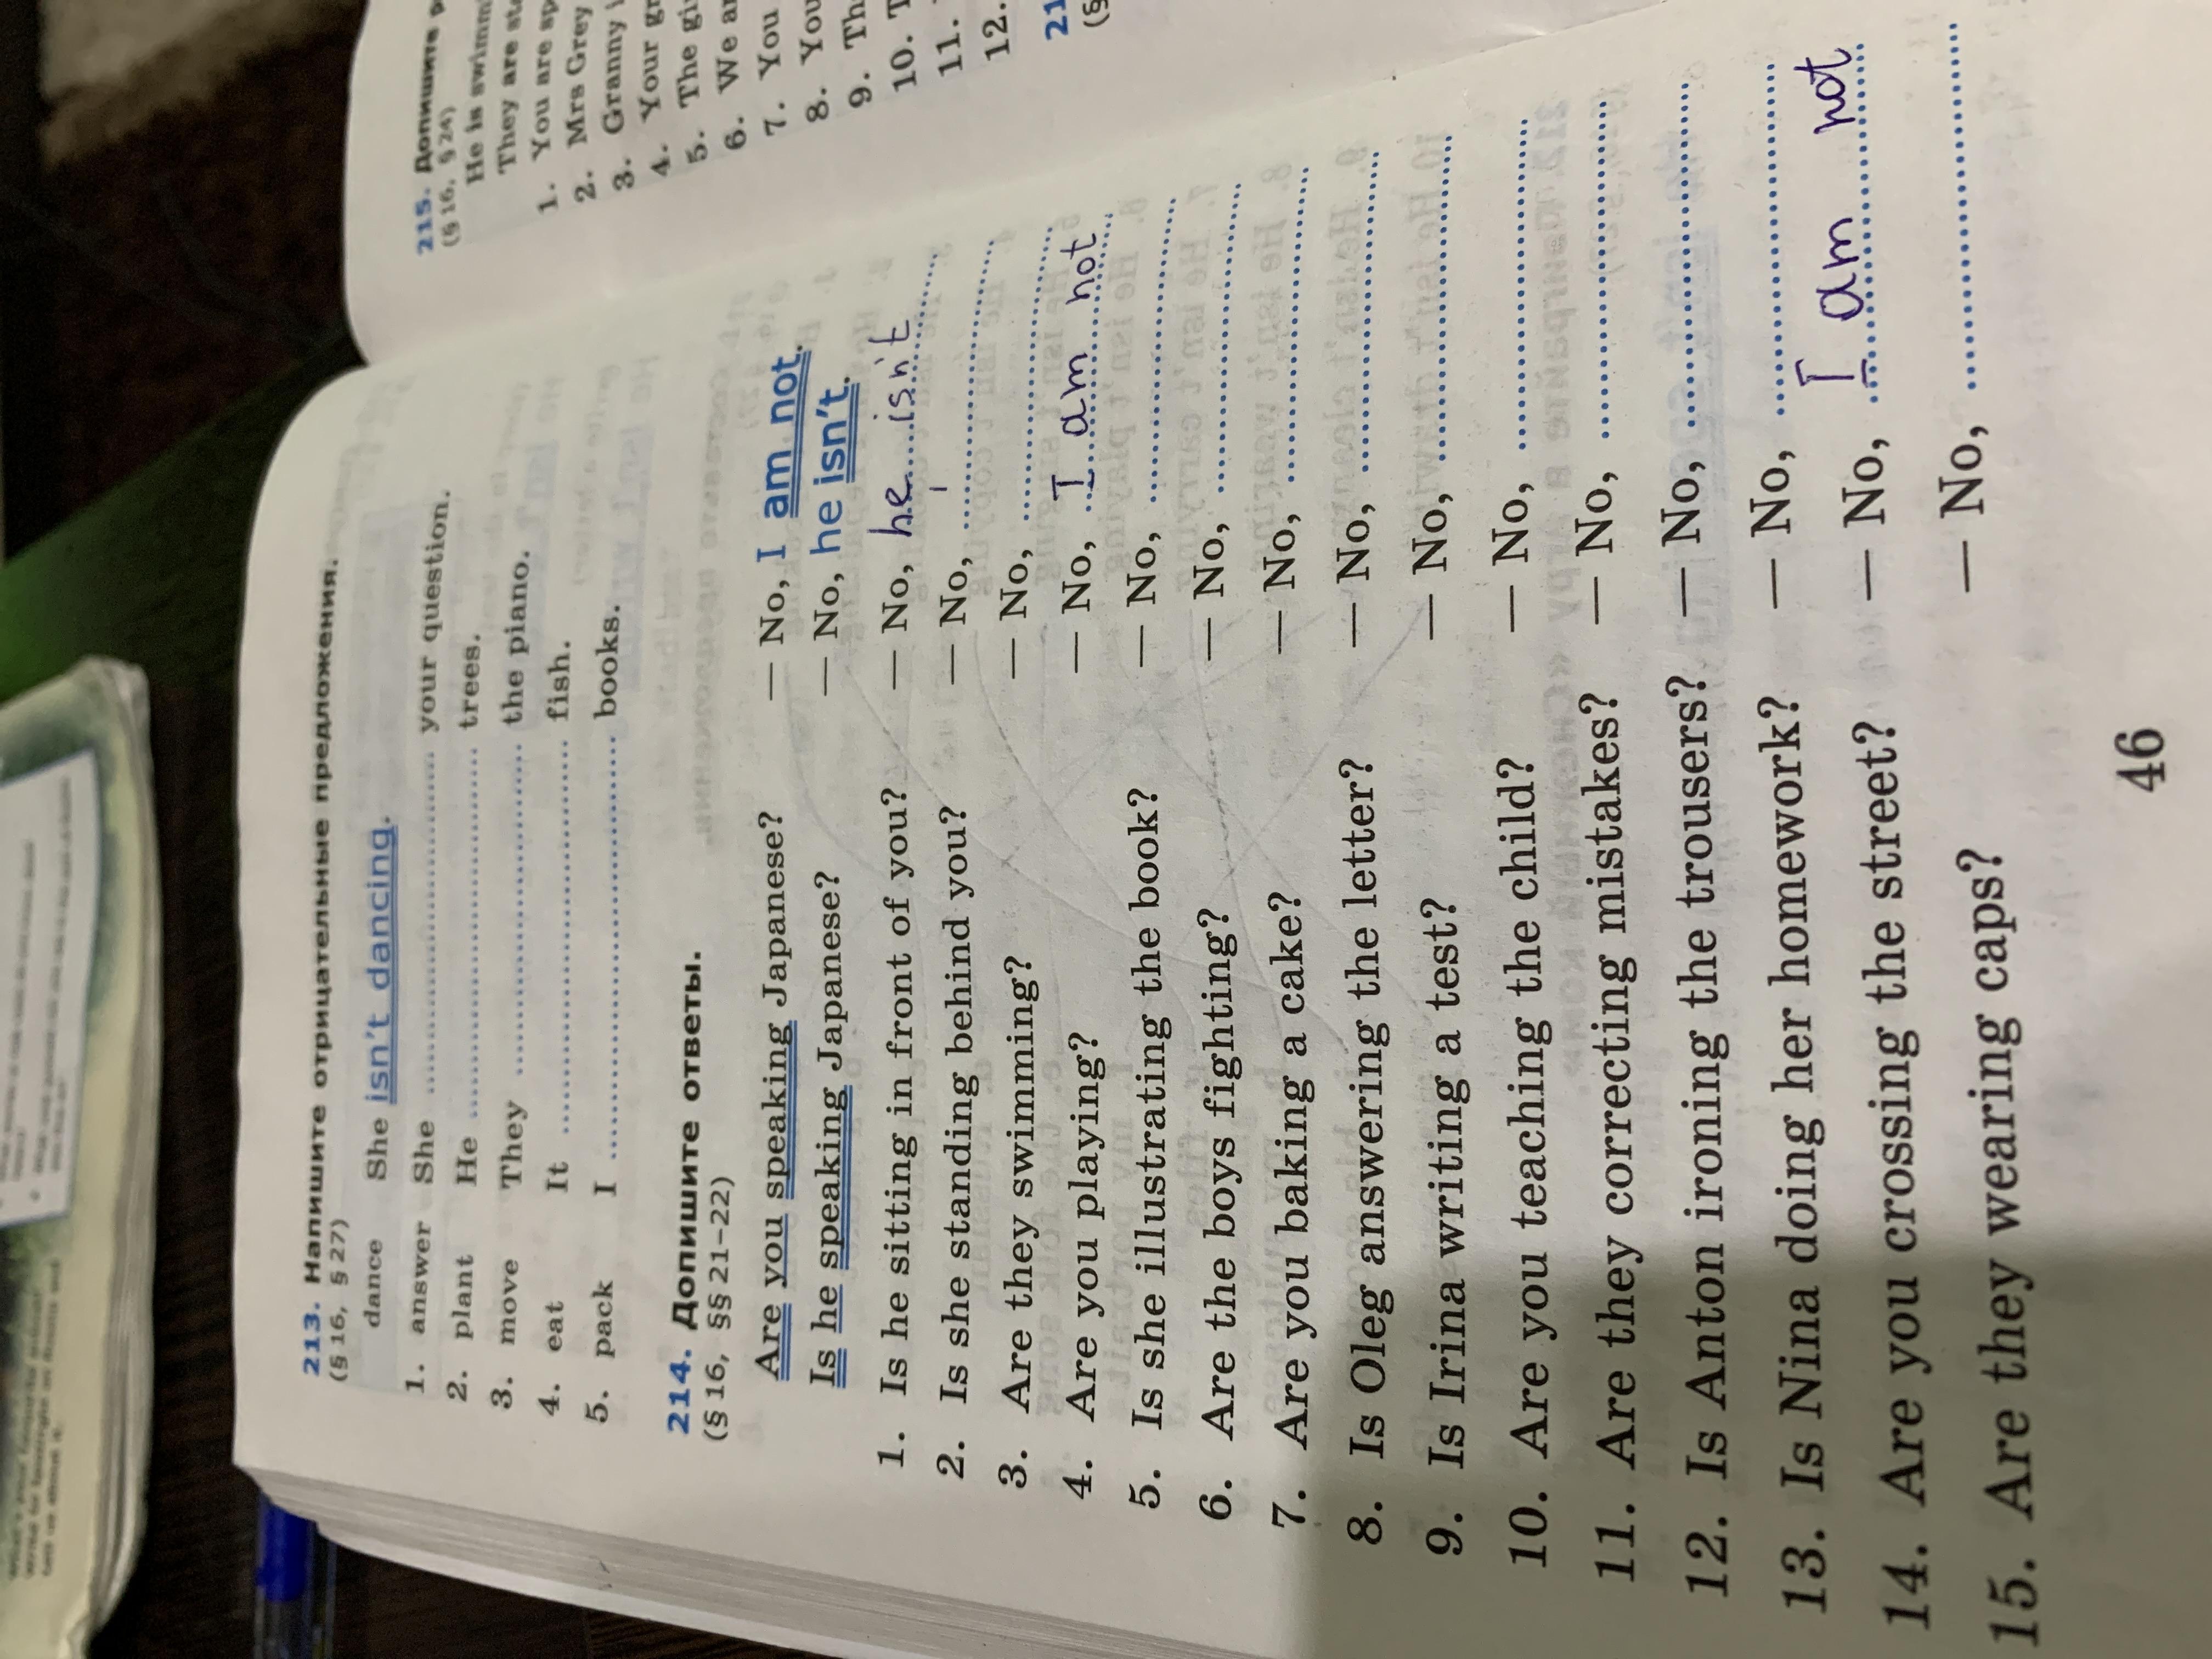 213. Напишите отрицательные предложения.
(§ 16, § 27)
dance She isn't dancing.
1. answer She ........ your question.
2. plant He ........ trees.
3. move They ........ the piano.
4. eat It ........ fish.
5. pack I ........ books.
214. Допишите ответы.
(§ 16, §§ 21–22)
Are you speaking Japanese? — No, I am not.
Is he speaking Japanese? — No, he isn't.
1. Is he sitting in front of you? — No, he isn't
2. Is she standing behind you? — No, ........
3. Are they swimming? — No, ........
4. Are you playing? — No, I am not
5. Is she illustrating the book? — No, ........
6. Are the boys fighting? — No, ........
7. Are you baking a cake? — No, ........
8. Is Oleg answering the letter? — No, ........
9. Is Irina writing a test? — No, ........
10. Are you teaching the child? — No, ........
11. Are they correcting mistakes? — No, ........
12. Is Anton ironing the trousers? — No, ........
13. Is Nina doing her homework? — No, ........
14. Are you crossing the street? — No, I am not
15. Are they wearing caps? — No, ........
46
215. Допишите
(§ 16, § 24)
He is swimmi
They are
1. You are
2. Mrs Grey
3. Granny
4. Your
5. The
6. We
7. You
8. You
9.
10.
11.
12.